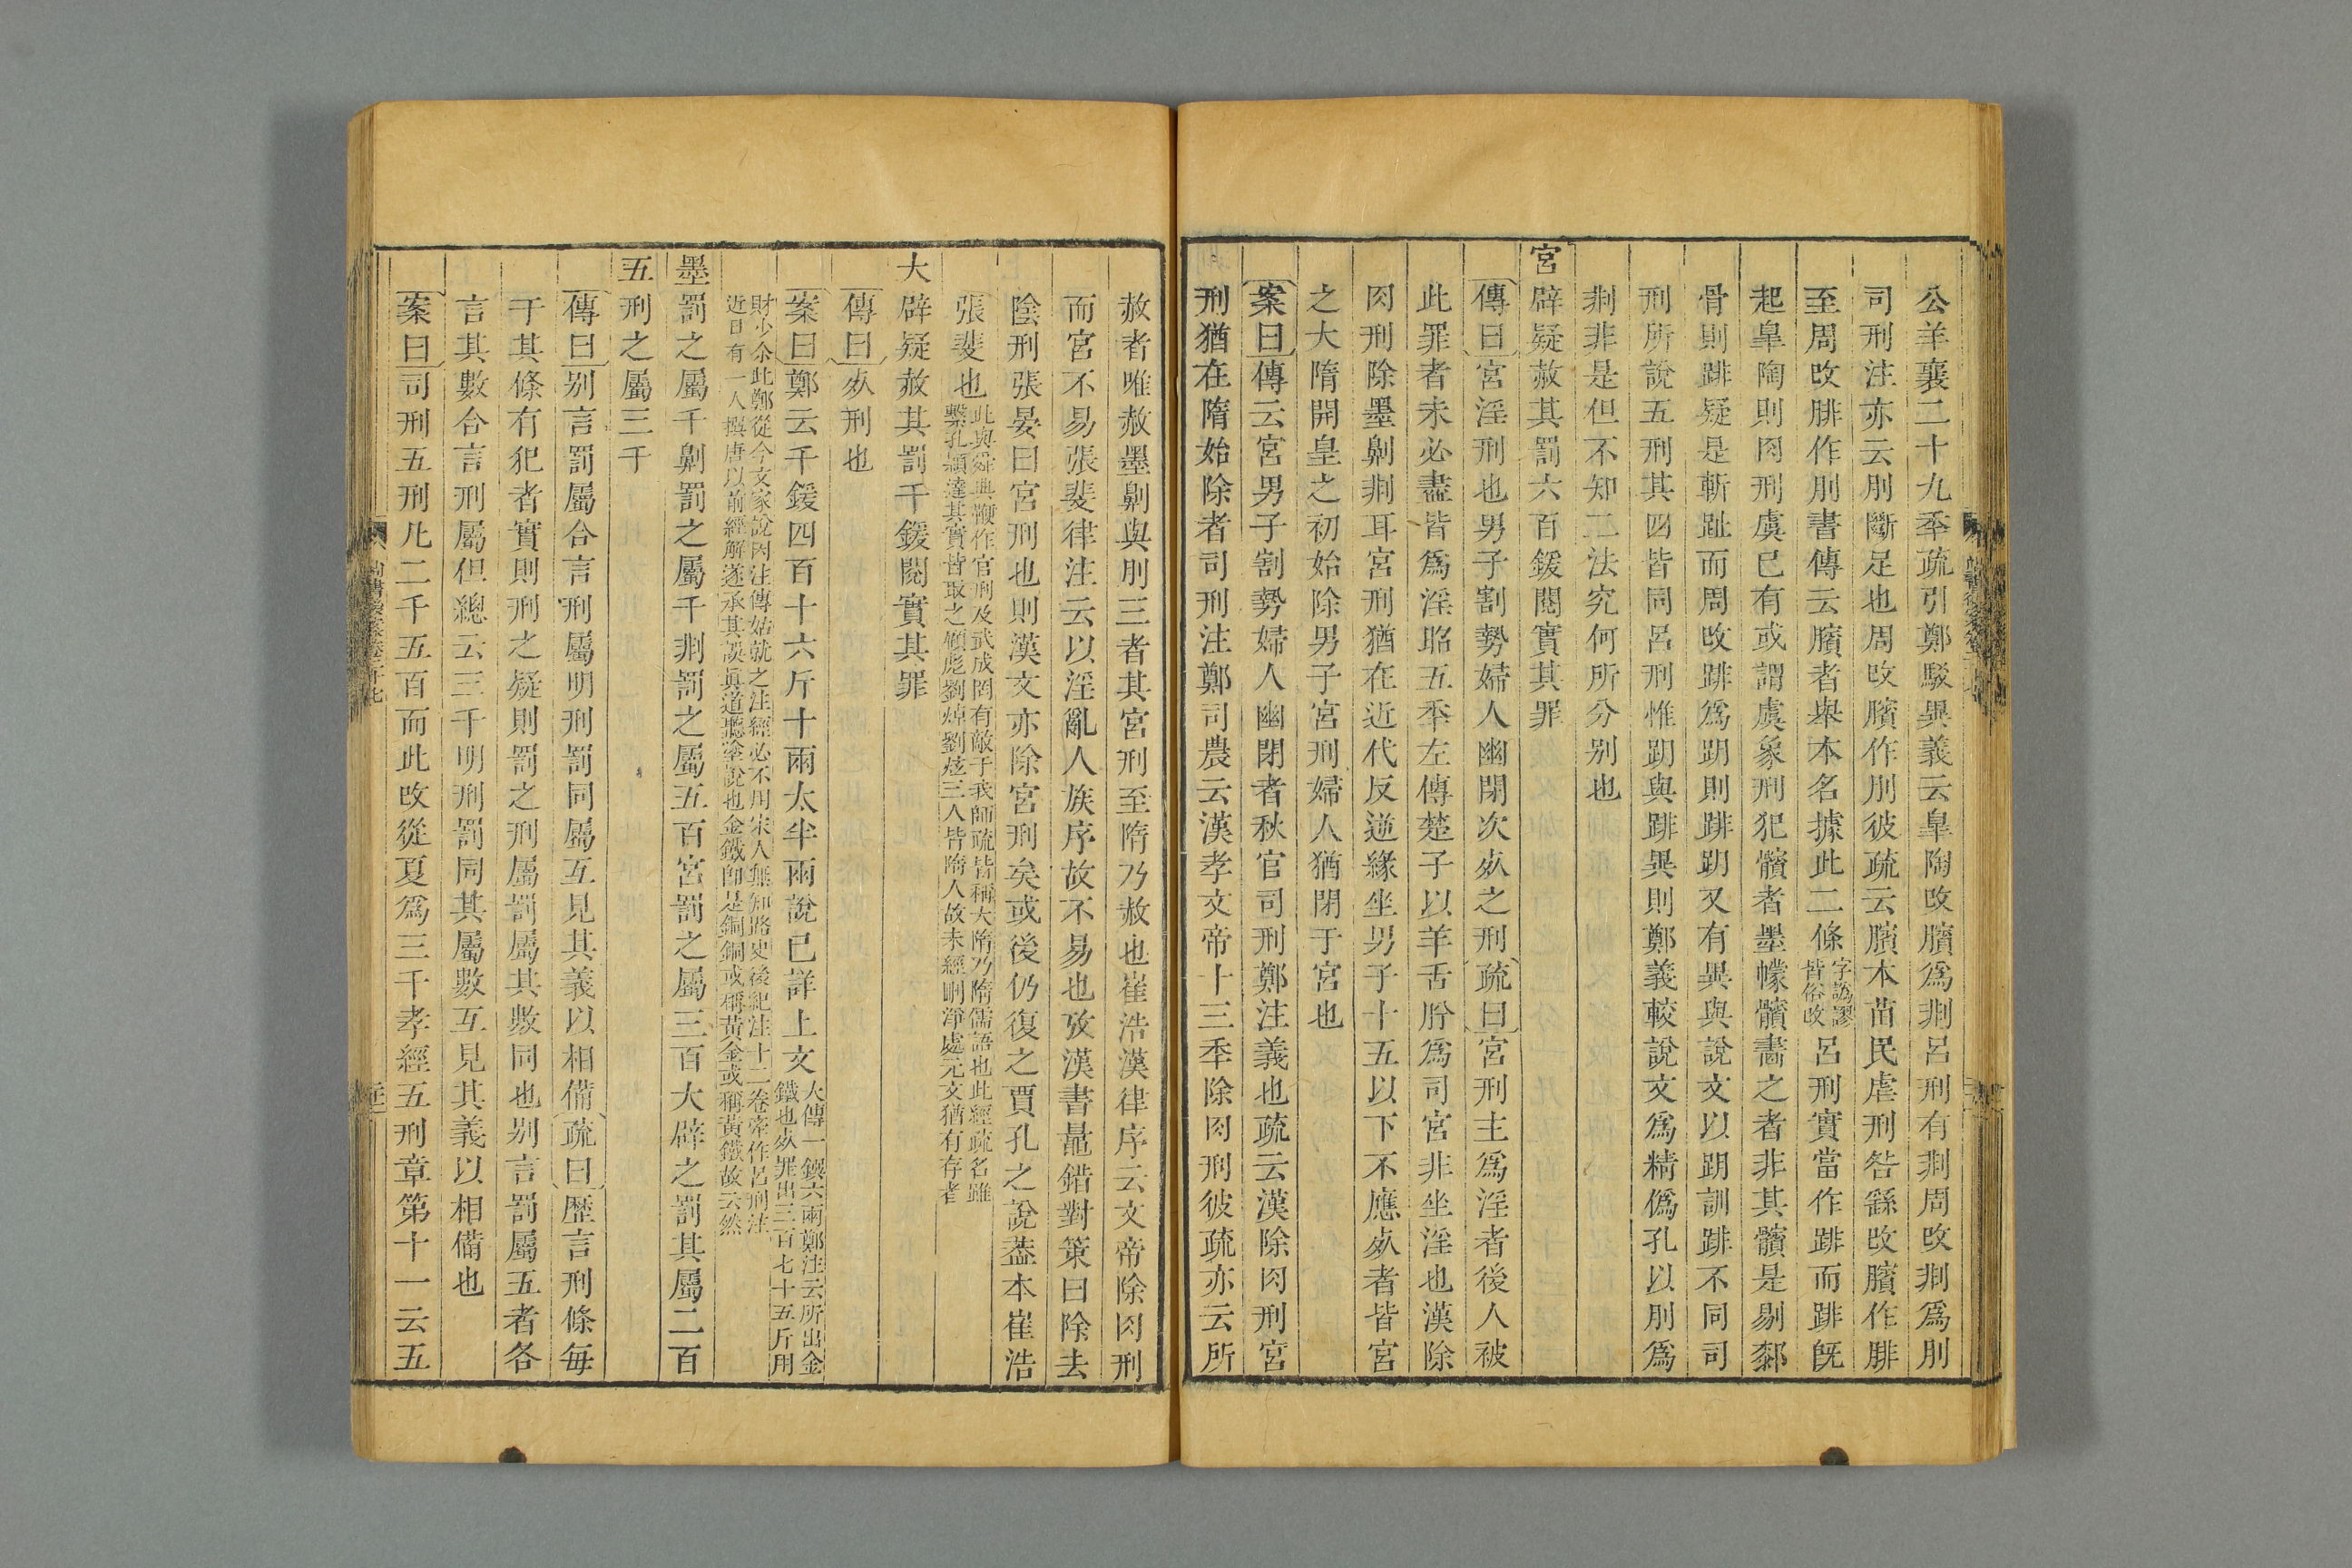 公羊襄二十九秊疏引鄭駁異義云臯陶改臏爲剕呂刑有剕周改剕爲刖
司刑注亦云刖斷足也周改臏作刖彼疏云臏本苗民虐刑咎繇改臏作腓
至周改腓作刖書傳云臏者舉本名據此二條字譌謬皆俗改呂刑實當作跸而跸旣
起臯陶則肉刑虞已有或謂虞象刑犯髕者墨幪髕畵之者非其髕是剔厀
骨則跸疑是斬趾而周改跸爲跀則跸跀又有異與說文以跀訓跸不同司
刑所說五刑其四皆同呂刑惟跀與跸異則鄭義較說文爲精僞孔以刖爲
剕非是但不知二法究何所分别也
宮辟疑赦其罰六百鍰閱實其罪
傳曰宮淫刑也男子割勢婦人幽閉次㱙之刑疏曰宮刑主爲淫者後人被
此罪者未必盡皆爲淫昭五秊左傳楚子以羊舌肸爲司宮非坐淫也漢除
肉刑除墨劓剕耳宮刑猶在近代反逆緣坐男子十五以下不應㱙者皆宮
之大隋開皇之初始除男子宮刑婦人猶閉于宮也
案曰傳云宮男子割勢婦人幽閉者秋官司刑鄭注義也疏云漢除肉刑宮
刑猶在隋始除者司刑注鄭司農云漢孝文帝十三秊除肉刑彼疏亦云所
赦者唯赦墨劓與刖三者其宮刑至隋乃赦也崔浩漢律序云文帝除肉刑
而宮不易張斐律注云以淫亂人族序故不易也攷漢書鼂錯對策曰除去
陰刑張晏曰宮刑也則漢文亦除宮刑矣或後仍復之賈孔之說葢本崔浩
張斐也此與舜典鞭作官刑及武成罔有敵于我師疏皆稱大隋乃隋儒語也此經疏名雖
繫孔穎達其實皆取之顧彪劉焯劉炫三人皆隋人故未經刪淨處元文猶有存者
大辟疑赦其罰千鍰閱實其罪
傳曰㱙刑也
案曰鄭云千鍰四百十六斤十兩太半兩說已詳上文大傳一鍰六兩鄭注云所出金
鐵也㱙罪出三百七十五斤用
財少尒此鄭從今文家說因注傳姑就之注經必不用宋人無知路史後紀注十二卷牽作呂刑注
近日有一人撰唐以前經解遂承其誤眞道聽塗說也金鐵卽是銅銅或稱黄金或稱黃鐵故云然
墨罰之屬千劓罰之屬千剕罰之屬五百宮罰之屬三百大辟之罰其屬二百
五刑之屬三千
傳曰别言罰屬合言刑屬明刑罰同屬互見其義以相備疏曰歷言刑條每
于其條有犯者實則刑之疑則罰之刑屬罰屬其數同也别言罰屬五者各
言其數合言刑屬但總云三千明刑罰同其屬數互見其義以相備也
案曰司刑五刑凡二千五百而此改從夏爲三千孝經五刑章第十一云五